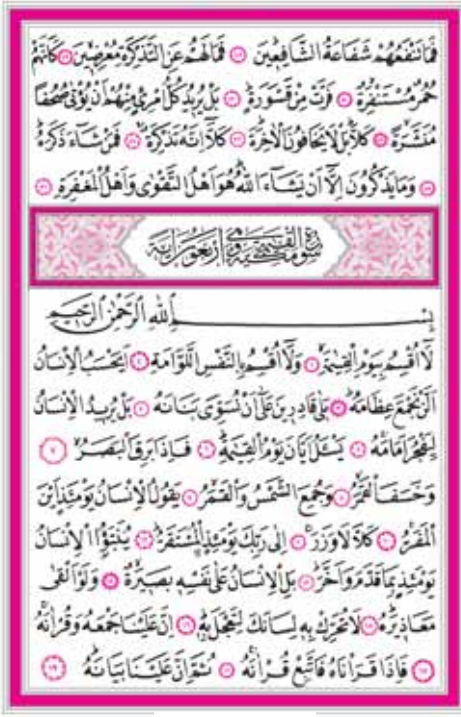 فَمَا تَنْفَعُهُمْ شَفَاعَةُ الشَّافِعِينَ ﴿٤٨﴾ فَمَا لَهُمْ عَنِ التَّذْكِرَةِ مُعْرِضِينَ ﴿٤٩﴾ كَاَنَّهُمْ
حُمُرٌ مُسْتَنْفِرَةٌ ﴿٥٠﴾ فَرَّتْ مِنْ قَسْوَرَةٍ ﴿٥١﴾ بَلْ يُرِيدُ كُلُّ امْرِئٍ مِنْهُمْ اَنْ يُؤْتٰى صُحُفًا
مُنَشَّرَةً ﴿٥٢﴾ كَلَّا بَلْ لَا يَخَافُونَ الْاٰخِرَةَ ﴿٥٣﴾ كَلَّا اِنَّهُ تَذْكِرَةٌ ﴿٥٤﴾ فَمَنْ شَاءَ ذَكَرَهُ
﴿٥٥﴾ وَمَا يَذْكُرُونَ اِلَّا اَنْ يَشَاءَ اللّٰهُ هُوَ اَهْلُ التَّقْوٰى وَاَهْلُ الْمَغْفِرَةِ ﴿٥٦﴾
سورة القيمة مكية وهي اربعون اية
بِسْمِ اللّٰهِ الرَّحْمٰنِ الرَّحِيمِ
لَا اُقْسِمُ بِيَوْمِ الْقِيٰمَةِ ﴿١﴾ وَلَا اُقْسِمُ بِالنَّفْسِ اللَّوَّامَةِ ﴿٢﴾ اَيَحْسَبُ الْاِنْسَانُ
اَلَّنْ نَجْمَعَ عِظَامَهُ ﴿٣﴾ بَلٰى قَادِرِينَ عَلٰى اَنْ نُسَوِّىَ بَنَانَهُ ﴿٤﴾ بَلْ يُرِيدُ الْاِنْسَانُ
لِيَفْجُرَ اَمَامَهُ ﴿٥﴾ يَسْـَٔلُ اَيَّانَ يَوْمُ الْقِيٰمَةِ ﴿٦﴾ فَاِذَا بَرِقَ الْبَصَرُ ﴿٧﴾
وَخَسَفَ الْقَمَرُ ﴿٨﴾ وَجُمِعَ الشَّمْسُ وَالْقَمَرُ ﴿٩﴾ يَقُولُ الْاِنْسَانُ يَوْمَئِذٍ اَيْنَ
الْمَفَرُّ ﴿١٠﴾ كَلَّا لَا وَزَرَ ﴿١١﴾ اِلٰى رَبِّكَ يَوْمَئِذٍ الْمُسْتَقَرُّ ﴿١٢﴾ يُنَبَّؤُا الْاِنْسَانُ
يَوْمَئِذٍ بِمَا قَدَّمَ وَاَخَّرَ ﴿١٣﴾ بَلِ الْاِنْسَانُ عَلٰى نَفْسِهِ بَصِيرَةٌ ﴿١٤﴾ وَلَوْ اَلْقٰى
مَعَاذِيرَهُ ﴿١٥﴾ لَا تُحَرِّكْ بِهِ لِسَانَكَ لِتَعْجَلَ بِهِ ﴿١٦﴾ اِنَّ عَلَيْنَا جَمْعَهُ وَقُرْاٰنَهُ
﴿١٧﴾ فَاِذَا قَرَاْنَاهُ فَاتَّبِعْ قُرْاٰنَهُ ﴿١٨﴾ ثُمَّ اِنَّ عَلَيْنَا بَيَانَهُ ﴿١٩﴾